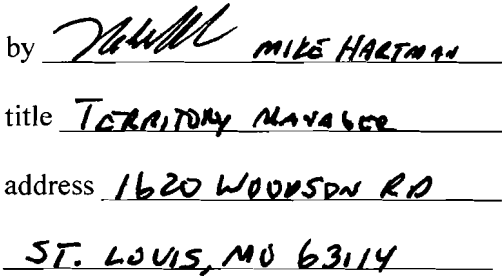 by MIKE HARTMAN
title TERRITORY MANAGER
address 1620 WOODSON RD
ST. LOUIS, MO 63114